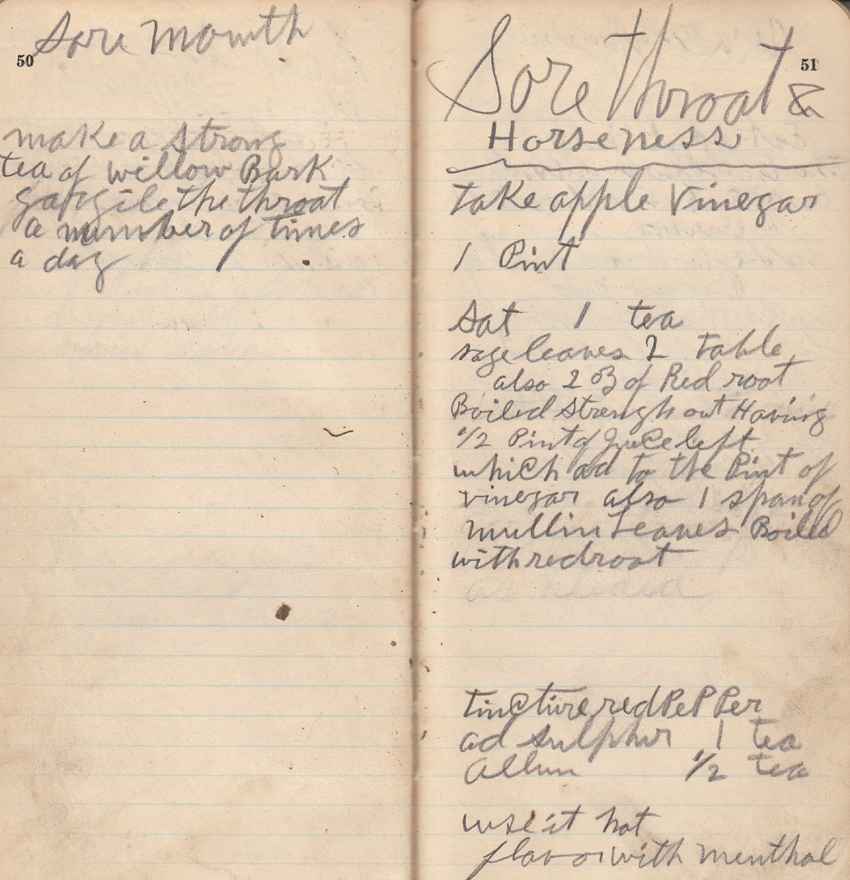 50
Sore Mouth
make a strong
tea of willow Bark
gargile the throat
a number of times
a day
51
Sore throat &
Horseness
take apple vinegar
1 Pint
Sat 1 tea
sage leaves 2 table
also 2 oz of Red root
Boiled Strengh out Having
1/2 Pint of Juice left
which ad to the Pint of
vinegar also 1 span of
mullin Leaves Boiled
with red root
tincture red PePPer
ad sulphur 1 tea
Allum 1/2 tea
use it hot
flavor with menthal